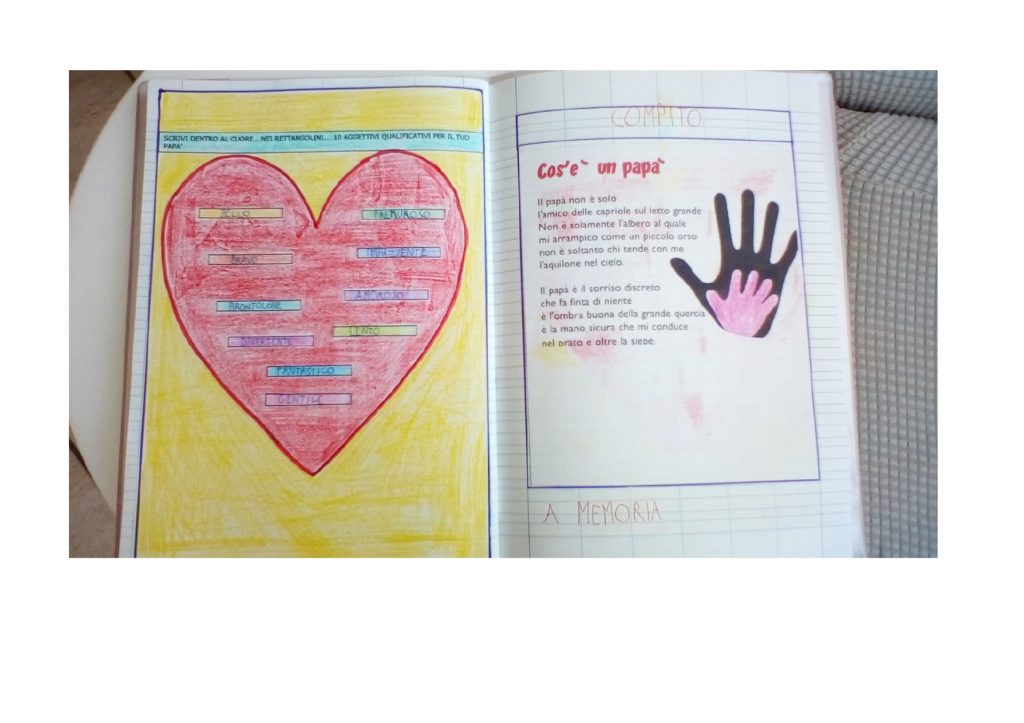 SCRIVI DENTRO AL CUORE....NEI RETTANGOLINI.... 10 AGGETTIVI QUALIFICATIVI PER IL TUO
PAPA'
BELLO
PREMUROSO
BRAVO
IMPAZIENTE
AMOROSO
BRONTOLONE
LENTO
DIVERTENTE
FANTASTICO
GENTILE
COMPITO
Cos'e` un papa`
Il papà non è solo
l'amico delle capriole sul letto grande
Non è solamente l'albero al quale
mi arrampico come un piccolo orso
non è soltanto chi tende con me
l'aquilone nel cielo.
Il papà è il sorriso discreto
che fa finta di niente
è l'ombra buona della grande quercia
è la mano sicura che mi conduce
nel prato e oltre la siepe.
A MEMORIA